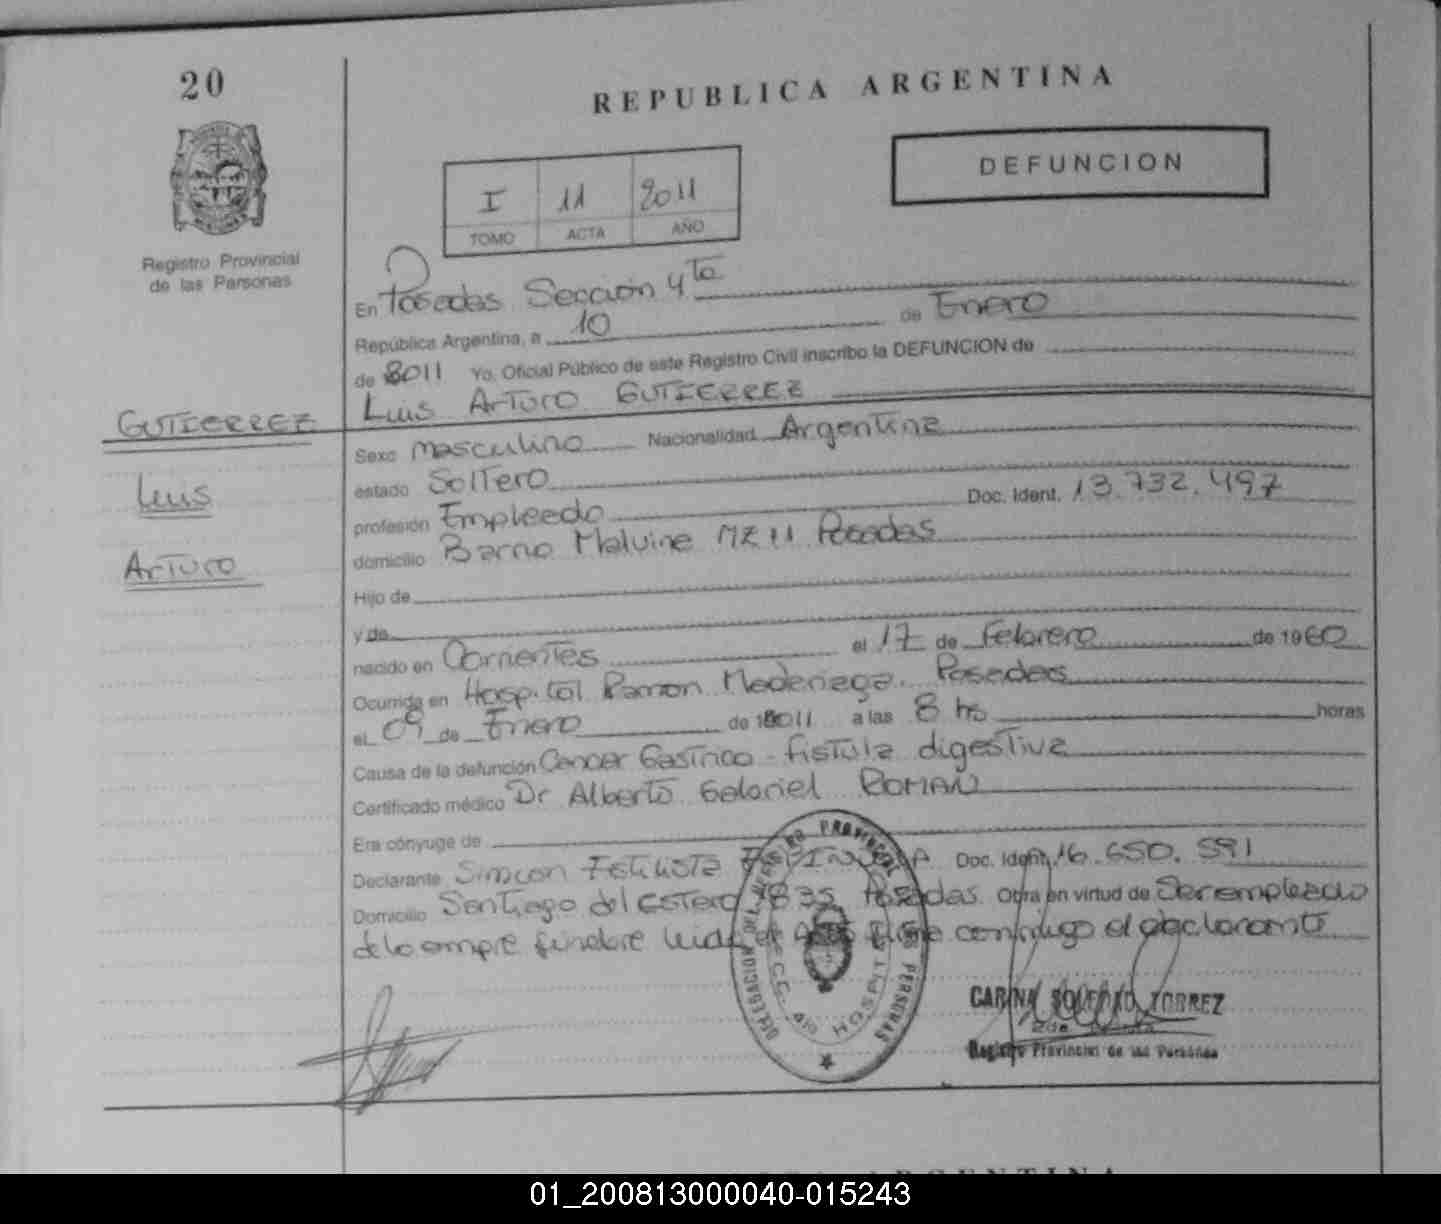 20
REPUBLICA ARGENTINA
DEFUNCION
I 11 2011
TOMO ACTA AÑO
Registro Provincial
de las Personas
En Posadas Sección 4ta
República Argentina, a 10 de Enero
de 2011 Yo, Oficial Público de este Registro Civil inscribo la DEFUNCION de
Luis Arturo GUTIERREZ
GUTIERREZ
Luis
Arturo
Sexo masculino Nacionalidad Argentina
estado Soltero
profesión Empleado Doc. Ident. 13.732.497
domicilio Barrio Malvina MZ 11 Posadas
Hijo de
y de
nacido en Corrientes el 17 de Febrero de 1960
Ocurrida en Hospital Ramon Madariaga. Posadas
el 09 de Enero de 2011 a las 8 hs horas
Causa de la defunción Cancer Gastrico - fistula digestiva
Certificado médico Dr Alberto Gabriel ROMAN
Era cónyuge de
Declarante Simeon Doc. Ident. 16.650.591
Domicilio Santiago del Estero 1835 Posadas. Obra en virtud de Ser empleado
de la empre fúnebre leida el acta firma conmigo el declarante
DELEGACION DEL REGISTRO PROVINCIAL DE LAS PERSONAS
SECC. 4ta HOSPITAL
CARINA SOLEDAD TORREZ
Registro Provincial de las Personas
REPUBLICA ARGENTINA
01_200813000040-015243